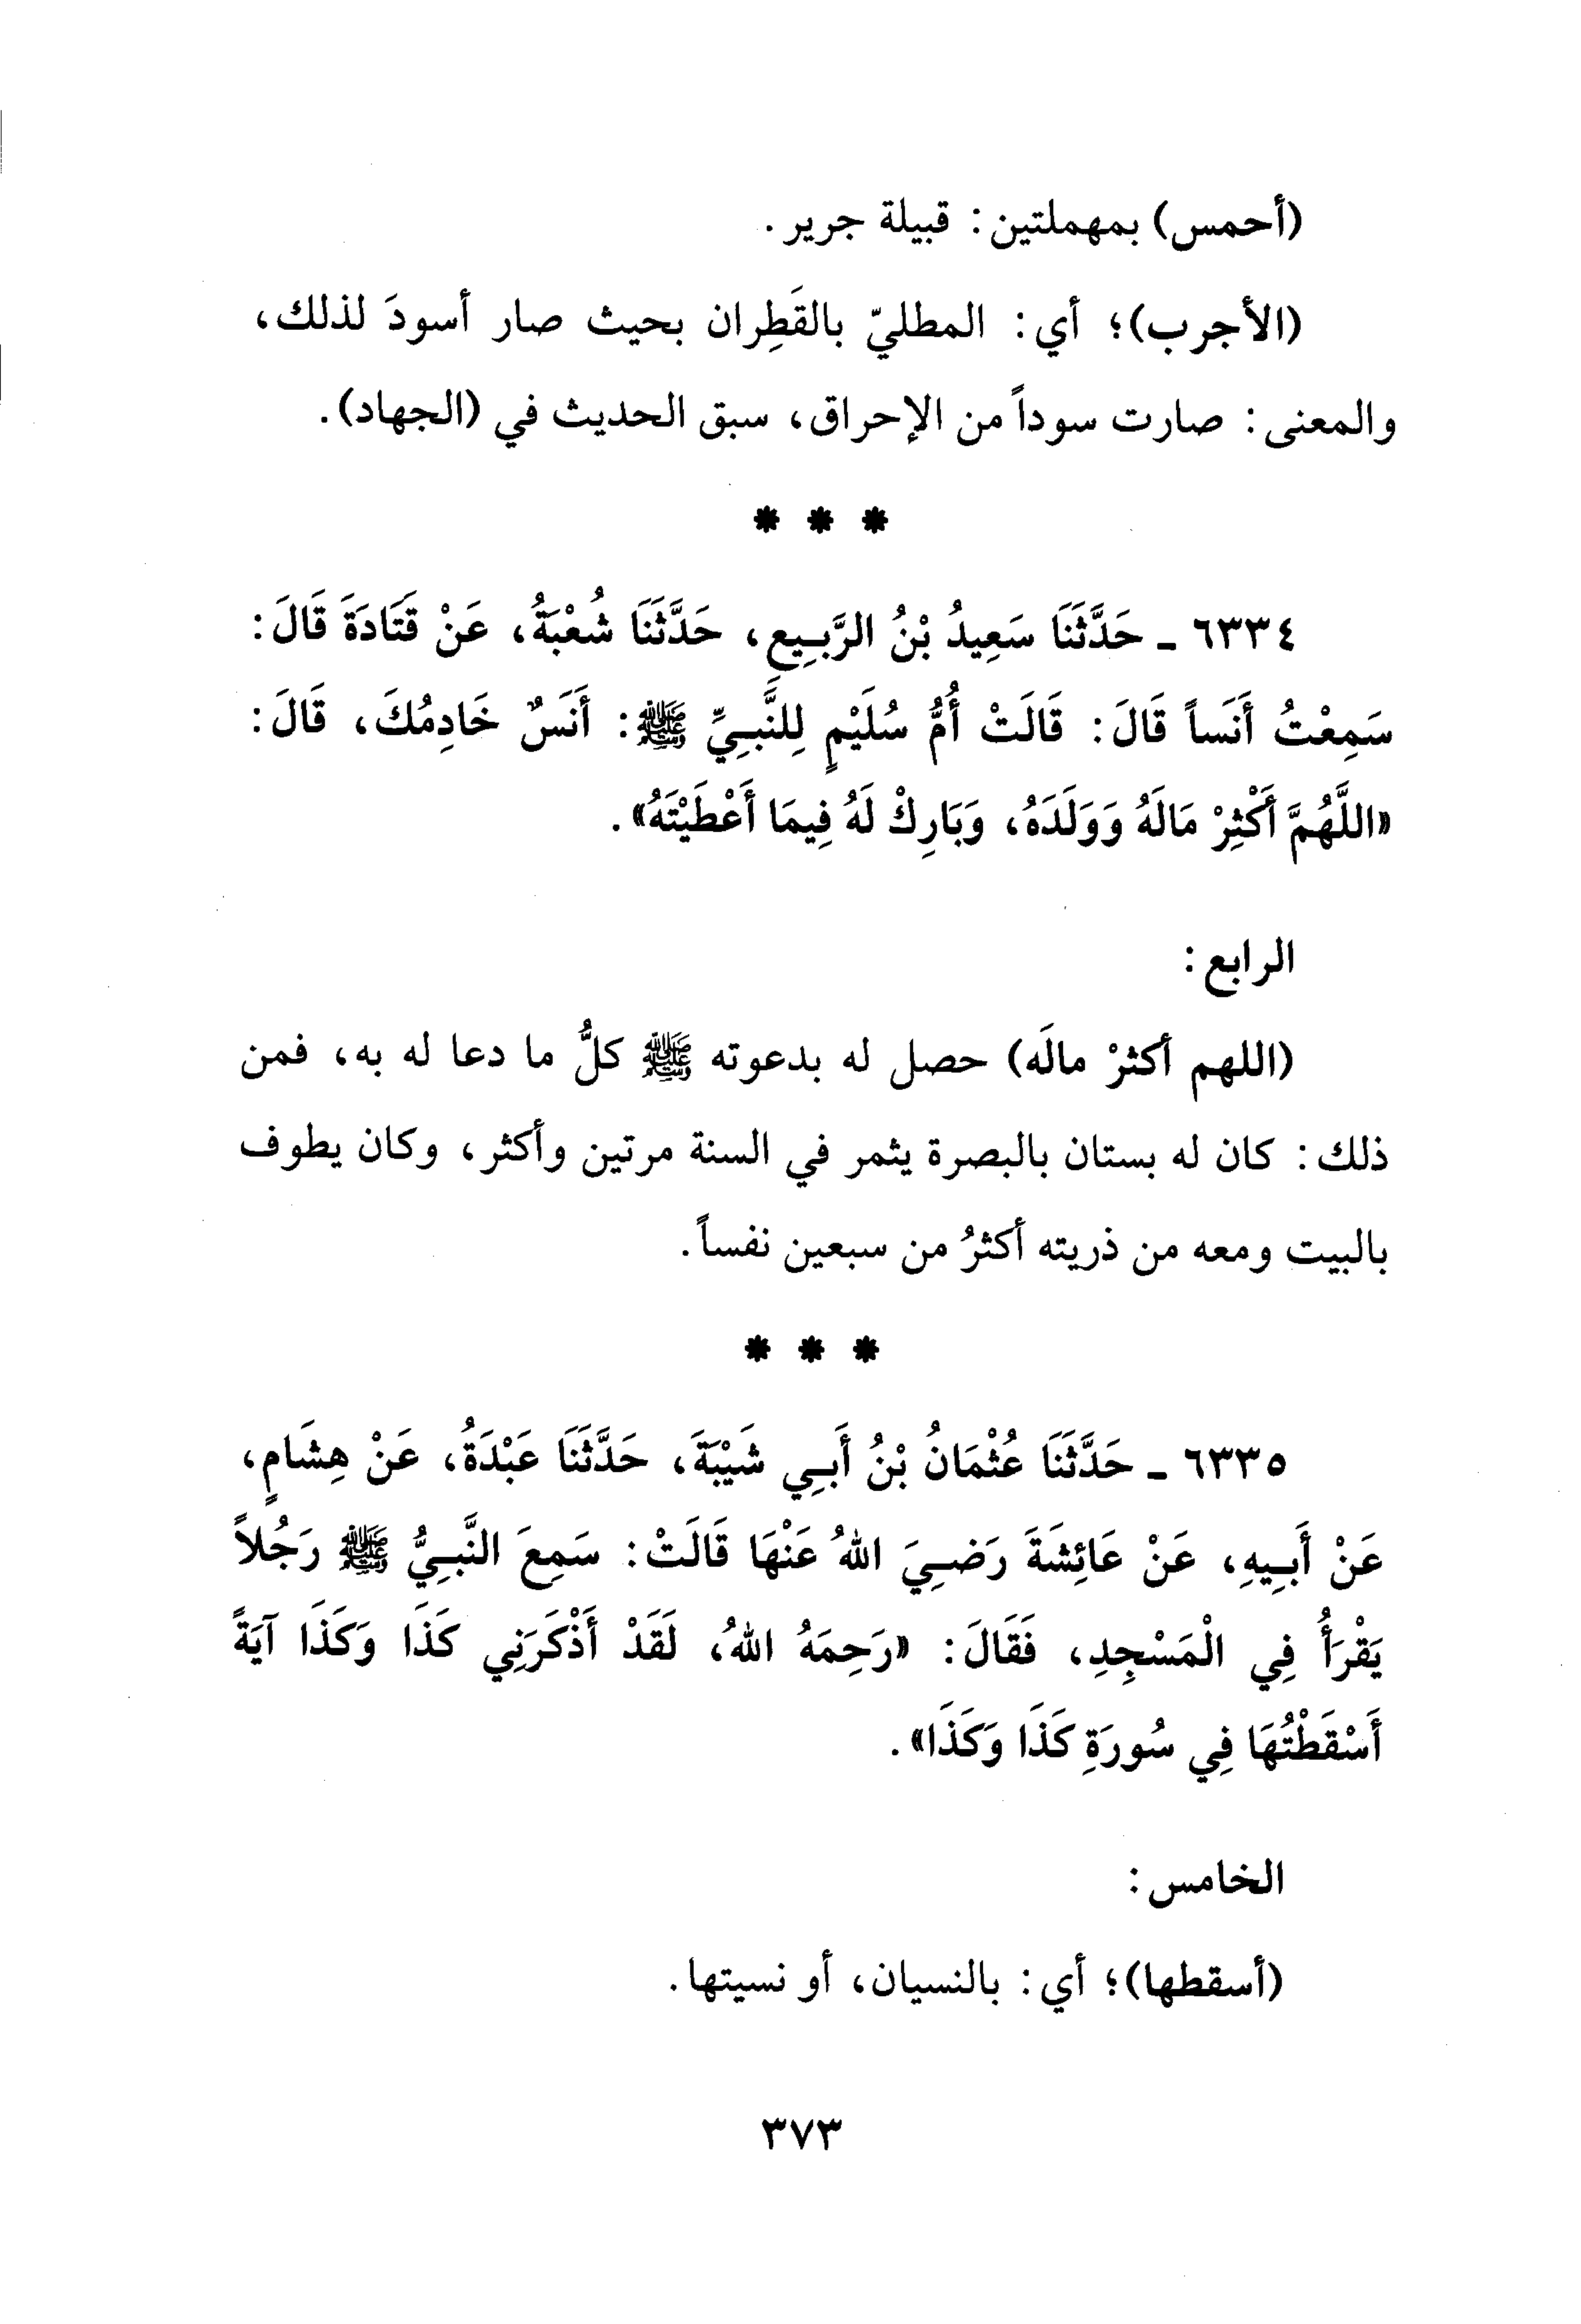 (أحمس) بمهملتين: قبيلة جرير.
(الأجرب)؛ أي: المطليّ بالقَطِران بحيث صار أسودَ لذلك،
والمعنى: صارت سوداً من الإحراق، سبق الحديث في (الجهاد).
* * *
٦٣٣٤ ـ حَدَّثَنَا سَعِيدُ بْنُ الرَّبِيعِ، حَدَّثَنَا شُعْبَةُ، عَنْ قَتَادَةَ قَالَ:
سَمِعْتُ أَنَساً قَالَ: قَالَتْ أُمُّ سُلَيْمٍ لِلنَّبِيِّ ﷺ: أَنَسٌ خَادِمُكَ، قَالَ:
«اللَّهُمَّ أَكْثِرْ مَالَهُ وَوَلَدَهُ، وَبَارِكْ لَهُ فِيمَا أَعْطَيْتَهُ».
الرابع:
(اللهم أكثرْ مالَه) حصل له بدعوته ﷺ كلُّ ما دعا له به، فمن
ذلك: كان له بستان بالبصرة يثمر في السنة مرتين وأكثر، وكان يطوف
بالبيت ومعه من ذريته أكثرُ من سبعين نفساً.
* * *
٦٣٣٥ ـ حَدَّثَنَا عُثْمَانُ بْنُ أَبِي شَيْبَةَ، حَدَّثَنَا عَبْدَةُ، عَنْ هِشَامٍ،
عَنْ أَبِيهِ، عَنْ عَائِشَةَ رَضِيَ اللهُ عَنْهَا قَالَتْ: سَمِعَ النَّبِيُّ ﷺ رَجُلاً
يَقْرَأُ فِي الْمَسْجِدِ، فَقَالَ: «رَحِمَهُ اللهُ، لَقَدْ أَذْكَرَنِي كَذَا وَكَذَا آيَةً
أَسْقَطْتُهَا فِي سُورَةِ كَذَا وَكَذَا».
الخامس:
(أسقطها)؛ أي: بالنسيان، أو نسيتها.
٣٧٣